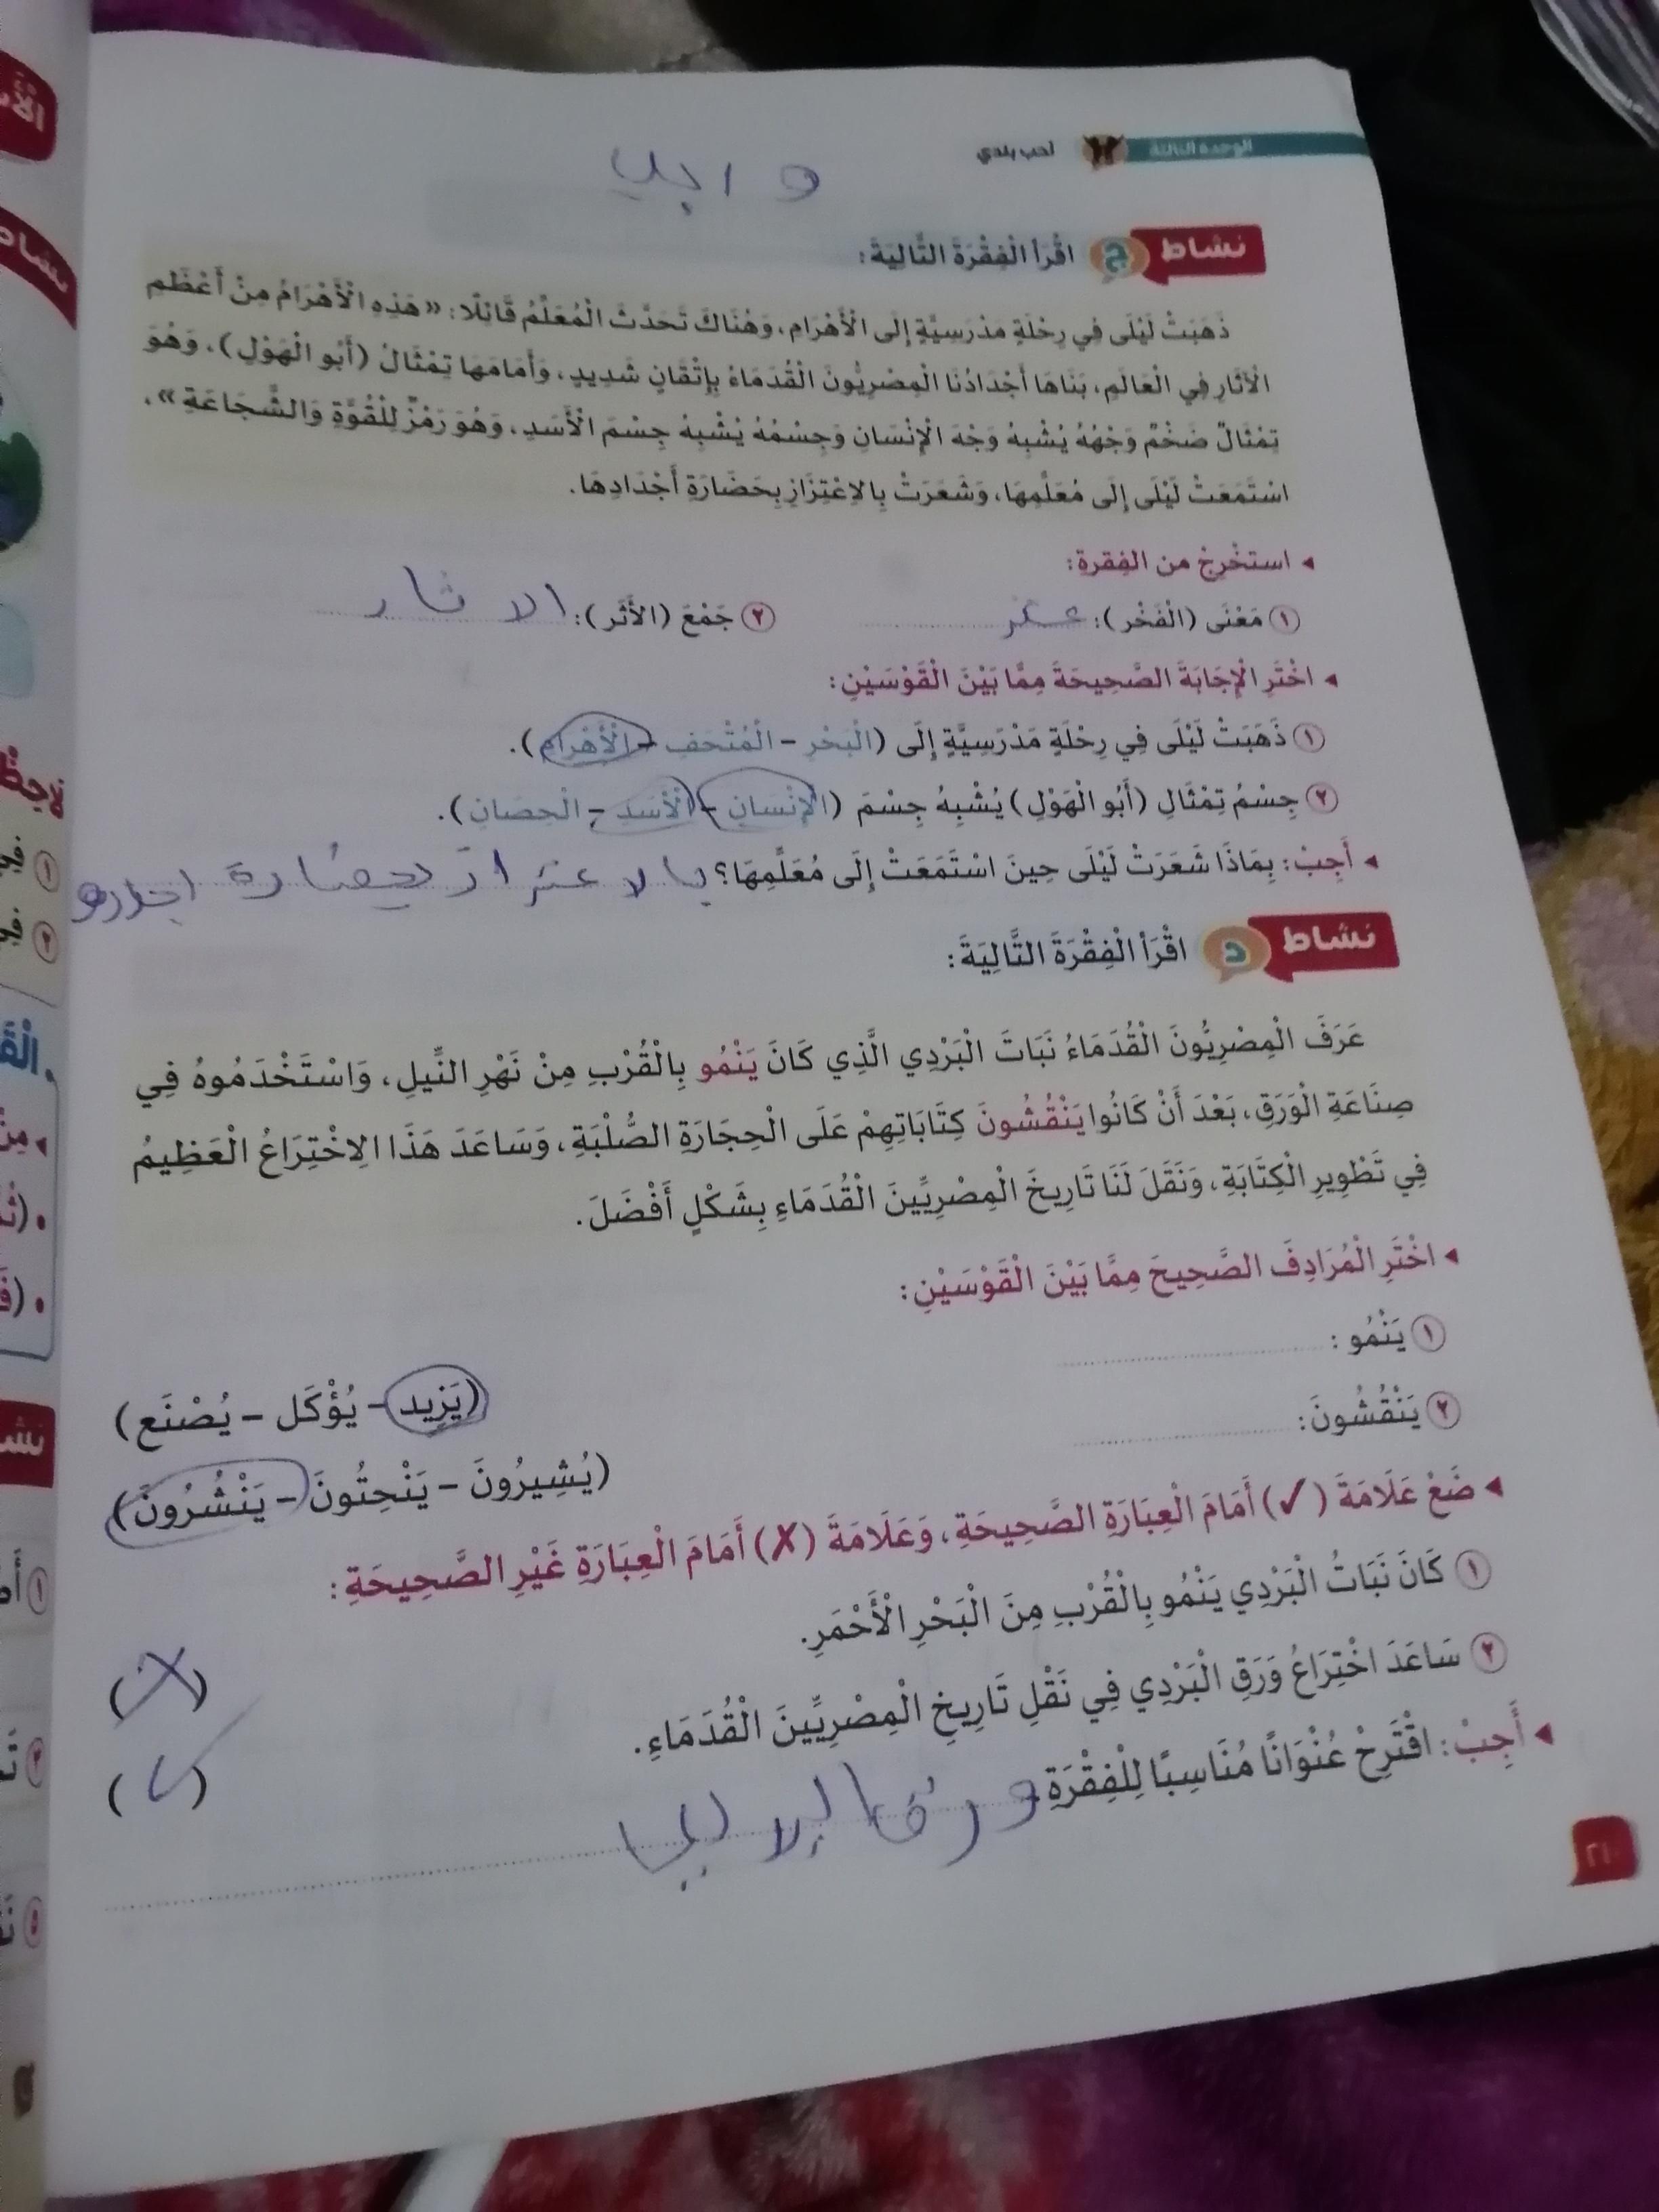 الوحدة الثالثة أحب بلدي
واجب
نشاط ج اقْرَأ الْفِقْرَةَ التَّالِيَةَ:
ذَهَبَتْ لَيْلَى فِي رِحْلَةٍ مَدْرَسِيَّةٍ إِلَى الْأَهْرَامِ، وَهُنَاكَ تَحَدَّثَ الْمُعَلِّمُ قَائِلًا: «هَذِهِ الْأَهْرَامُ مِنْ أَعْظَمِ
الْآثَارِ فِي الْعَالَمِ، بَنَاهَا أَجْدَادُنَا الْمِصْرِيُّونَ الْقُدَمَاءُ بِإِتْقَانٍ شَدِيدٍ، وَأَمَامَهَا تِمْثَالُ (أَبُو الْهَوْلِ)، وَهُوَ
تِمْثَالٌ ضَخْمٌ وَجْهُهُ يُشْبِهُ وَجْهَ الْإِنْسَانِ وَجِسْمُهُ يُشْبِهُ جِسْمَ الْأَسَدِ، وَهُوَ رَمْزٌ لِلْقُوَّةِ وَالشَّجَاعَةِ».
اسْتَمَعَتْ لَيْلَى إِلَى مُعَلِّمِهَا، وَشَعَرَتْ بِالِاعْتِزَازِ بِحَضَارَةِ أَجْدَادِهَا.
◂ استخْرِجْ من الفِقرةِ:
١ مَعْنَى (الْفَخْر): ٢ جَمْعَ (الأَثَر): الاثار
◂ اخْتَرِ الْإِجَابَةَ الصَّحِيحَةَ مِمَّا بَيْنَ الْقَوْسَيْنِ:
١ ذَهَبَتْ لَيْلَى فِي رِحْلَةٍ مَدْرَسِيَّةٍ إِلَى (الْبَحْرِ – الْمُتْحَفِ – الْأَهْرَامِ).
٢ جِسْمُ تِمْثَالِ (أَبُو الْهَوْلِ) يُشْبِهُ جِسْمَ (الْإِنْسَانِ – الْأَسَدِ – الْحِصَانِ).
◂ أَجِبْ: بِمَاذَا شَعَرَتْ لَيْلَى حِينَ اسْتَمَعَتْ إِلَى مُعَلِّمِهَا؟ بالاعتزاز بحضارة
نشاط د اقْرَأ الْفِقْرَةَ التَّالِيَةَ:
عَرَفَ الْمِصْرِيُّونَ الْقُدَمَاءُ نَبَاتَ الْبَرْدِي الَّذِي كَانَ يَنْمُو بِالْقُرْبِ مِنْ نَهْرِ النِّيلِ، وَاسْتَخْدَمُوهُ فِي
صِنَاعَةِ الْوَرَقِ، بَعْدَ أَنْ كَانُوا يَنْقُشُونَ كِتَابَاتِهِمْ عَلَى الْحِجَارَةِ الصُّلْبَةِ، وَسَاعَدَ هَذَا الِاخْتِرَاعُ الْعَظِيمُ
فِي تَطْوِيرِ الْكِتَابَةِ، وَنَقَلَ لَنَا تَارِيخَ الْمِصْرِيِّينَ الْقُدَمَاءِ بِشَكْلٍ أَفْضَلَ.
◂ اخْتَرِ الْمُرَادِفَ الصَّحِيحَ مِمَّا بَيْنَ الْقَوْسَيْنِ:
١ يَنْمُو: (يَزِيد – يُؤْكَل – يُصْنَع)
٢ يَنْقُشُونَ: (يُشِيرُونَ – يَنْحِتُونَ – يَنْشُرُونَ)
◂ ضَعْ عَلَامَةَ (✓) أَمَامَ الْعِبَارَةِ الصَّحِيحَةِ، وَعَلَامَةَ (✗) أَمَامَ الْعِبَارَةِ غَيْرِ الصَّحِيحَةِ:
١ كَانَ نَبَاتُ الْبَرْدِي يَنْمُو بِالْقُرْبِ مِنَ الْبَحْرِ الْأَحْمَرِ. (✗)
٢ سَاعَدَ اخْتِرَاعُ وَرَقِ الْبَرْدِي فِي نَقْلِ تَارِيخِ الْمِصْرِيِّينَ الْقُدَمَاءِ. (✓)
◂ أَجِبْ: اقْتَرِحْ عُنْوَانًا مُنَاسِبًا لِلْفِقْرَةِ.
٢١